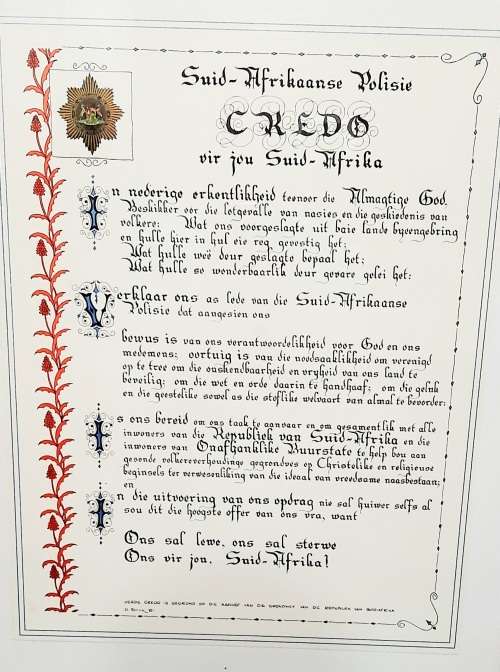 Suid-Afrikaanse Polisie
CREDO
vir jou Suid-Afrika
In nederige erkentlikheid teenoor die Almagtige God.
Beskikker oor die lotgevalle van nasies en die geskiedenis van
volkere: Wat ons voorgeslagte uit baie lande byeengebring
en hulle hier in hul eie reg gevestig het;
Wat hulle weë deur geslagte bepaal het;
Wat hulle so wonderbaarlik deur gevare gelei het:
Verklaar ons as lede van die Suid-Afrikaanse
Polisie dat aangesien ons
bewus is van ons verantwoordelikheid voor God en ons
medemens; oortuig is van die noodsaaklikheid om verenigd
op te tree om die onskendbaarheid en vryheid van ons land te
beveilig; om die wet en orde daarin te handhaaf; om die geluk
en die geestelike sowel as die stoflike welvaart van almal te bevorder:
Is ons bereid om ons taak te aanvaar en om gesamentlik met alle
inwoners van die Republiek van Suid-Afrika en die
inwoners van Onafhanklike Buurstate te help bou aan
gesonde volkereverhoudinge gegrondves op Christelike en religieuse
beginsels ter verwesenliking van die ideaal van vreedsame naasbestaan;
en
In die uitvoering van ons opdrag nie sal huiwer selfs al
sou dit die hoogste offer van ons vra, want
Ons sal lewe, ons sal sterwe
Ons vir jou, Suid-Afrika!
HIERDIE CREDO IS GEGROND OP DIE AANHEF VAN DIE GRONDWET VAN DIE REPUBLIEK VAN SUID-AFRIKA